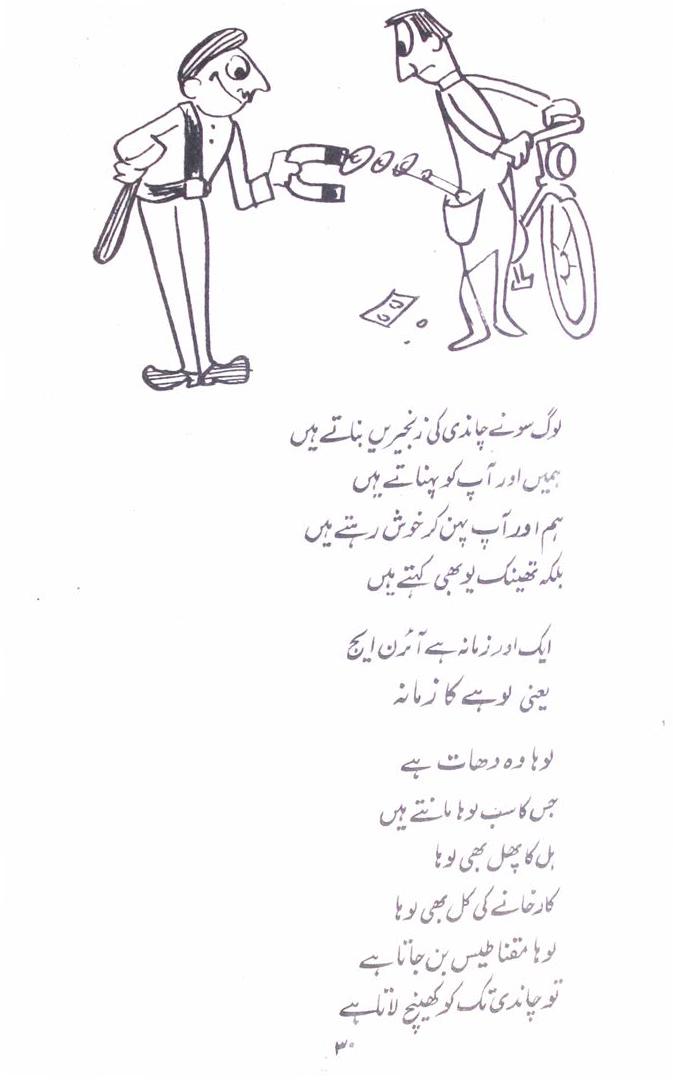 لوگ سونے چاندی کی زنجیریں بناتے ہیں
ہمیں اور آپ کو پہناتے ہیں
ہم اور آپ پہن کر خوش رہتے ہیں
بلکہ تھینک یو بھی کہتے ہیں
ایک اور زمانہ ہے آئرن ایج
یعنی لوہے کا زمانہ
لوہا وہ دھات ہے
جس کا سب لوہا مانتے ہیں
ہل کا پھل بھی لوہا
کارخانے کی کل بھی لوہا
لوہا مقناطیس بن جاتا ہے
تو چاندی تک کو کھینچ لاتا ہے
۳۰